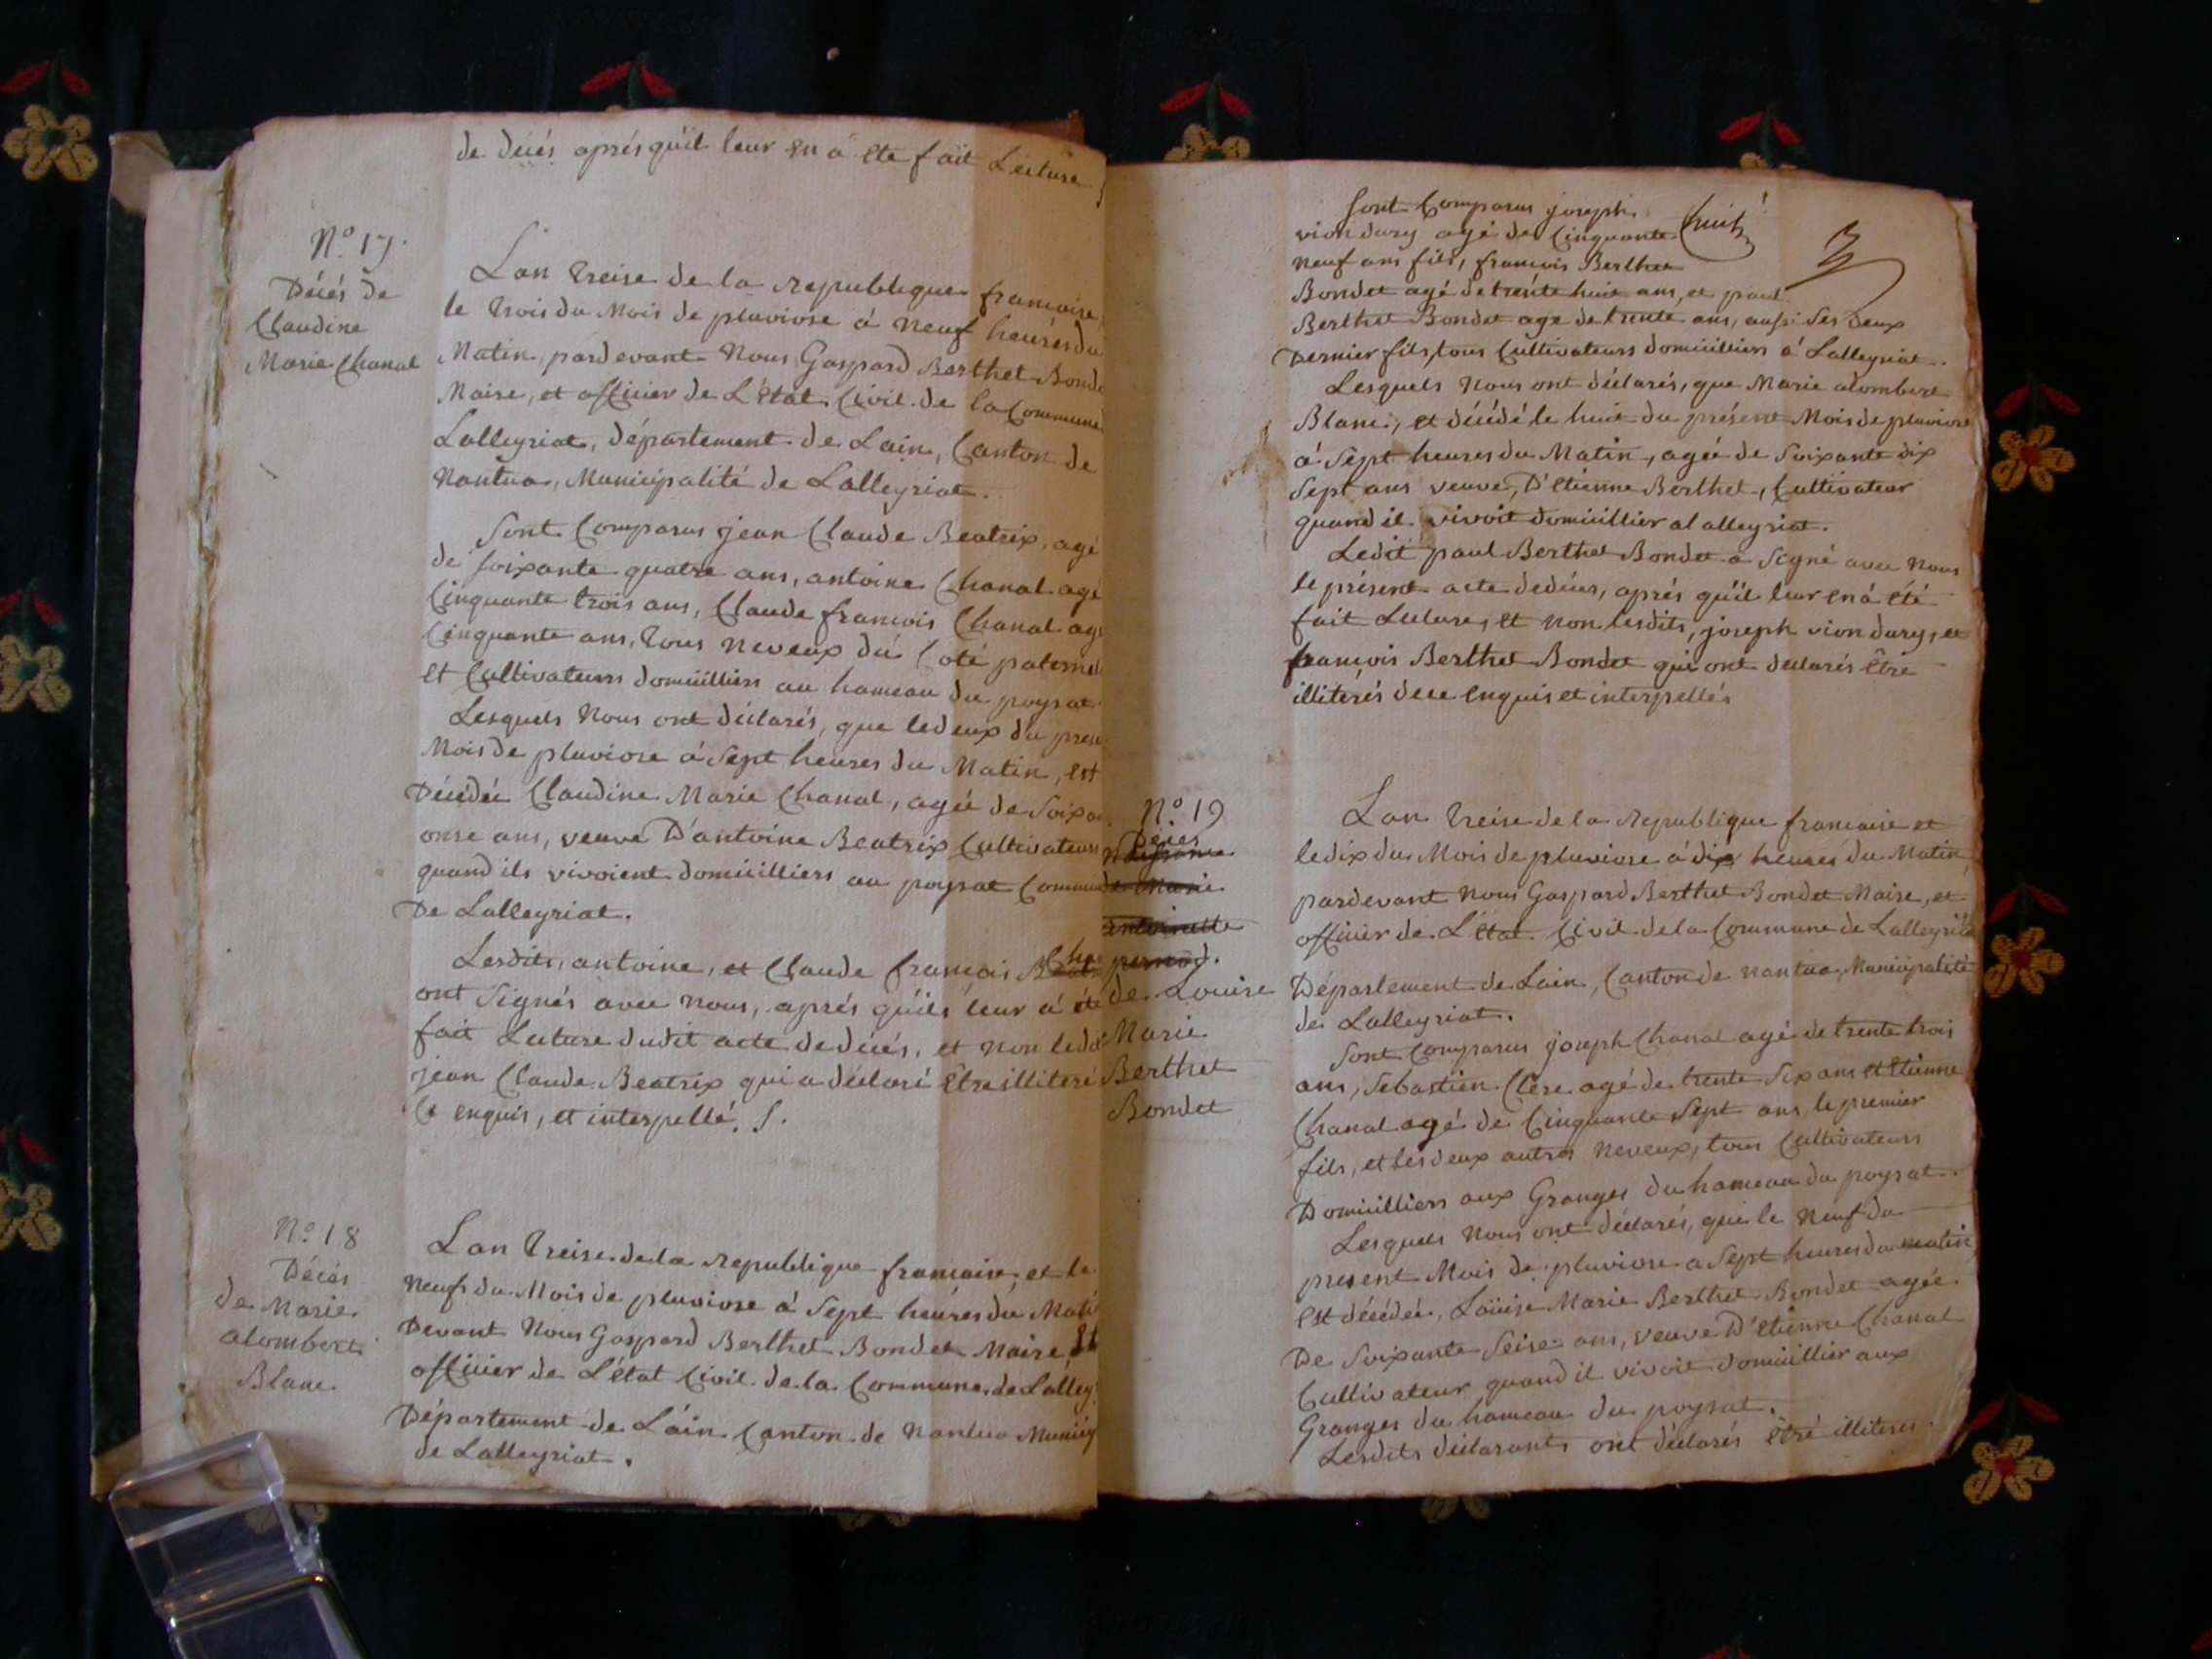 de décés aprés quïl leur en a ete fait Lecture
Nº 17.
Décés de
Claudine
Marie Chanal
Lan treise de la republique francaise,
le trois du Mois de pluviose á neuf heures du
Matin, pardevant Nous Gaspard Berthet Bonde
Maire, et officier de L'état Civil de la Commune
Lalleyriat, département de Lain, Canton de
Nantua, Municipalité de Lalleyriat.
Sont Comparus jean Claude Beatrix, agé
de soixante quatre ans, antoine Chanal agé
Cinquante trois ans, Claude francois Chanal agé
Cinquante ans, tous neveux du Coté paternel
et Cultivateurs domicilliers au hameau du poysat
Lesquels Nous ont déclarés, que le deux du prese
Mois de pluviose á Sept heures du Matin, est
Décédée Claudine Marie Chanal, agée de Soixa
onse ans, veuve D'antoine Beatrix Cultivateurs
quand ils vivoient domicilliers au poysat Commu
De Lalleyriat.
Lesdits, antoine, et Claude francois Cha
ont Signés avec nous, aprés quïls leur á été
fait Lecture dudit acte de décés, et non ledit
jean Claude Beatrix qui a déclaré Etre illiteré
Ce enquis, et interpellé. S.
Nº 18
Décés
de Marie
alombert
Blanc
Lan treise de la republique francaise et le
Neuf du Mois de pluviose á Sept heures du Mati
Devant Nous Gaspard Berthet Bondet Maire, et
officier de L'état Civil de la Commune de Lalley
Département de L'ain Canton de Nantua Municip
de Lalleyriat.
Sont Comparus joseph
vion dury agé de Cinquante huit
neuf ans fils, francois Berthet
Bondet agé de trente huit ans, et paul
Berthet Bondet age de trente ans, aussi Ses deux
Dernier fils, tous Cultivateurs domicilliers á Lalleyriat.
Lesquels Nous ont déclarés, que Marie alombert
Blanc, et décédé le huit du présent Mois de pluviose
á Sept heures du Matin, agée de Soixante dix
Sept ans veuve, D'etienne Berthet, Cultivateur
quand il vivoit domicillier a lalleyriat.
Ledit paul Berthet Bondet a Signé avec Nous
le présent acte de décés, aprés quïl leur en á été
fait Lecture, et non lesdits, joseph vion dury, et
francois Berthet Bondet qui ont declarés Etre
illiterés de ce enquis et interpellés
Nº 19
Déces
de Marie
antoinette
pernod.
de Louise
Marie
Berthet
Bondet
Lan treise de la republique francaise et
le dix du Mois de pluviose á dix heures du Matin
pardevant Nous Gaspard Berthet Bondet Maire, et
officier de L'état Civil de la Commune de Lalleyria
Département de Lain, Canton de nantua, Municipalité
de Lalleyriat.
Sont Comparus joseph Chanal agé de trente trois
ans, Sebastien Clere agé de trente Six ans et Etienne
Chanal agé de Cinquante Sept ans, le premier
fils, et les deux autres Neveux, tous Cultivateurs
Domicilliers aux Granges du hameau du poysat.
Lesquels Nous ont déclarés, que le Neuf du
present Mois de pluviose a Sept heures du matin
Est décédée, Louise Marie Berthet Bondet agée
De Soixante Seise ans, veuve D'etienne Chanal
Cultivateur quand il vivoit domicillier aux
Granges du hameau du poysat.
Lesdits déclarants ont déclarés être illiterés